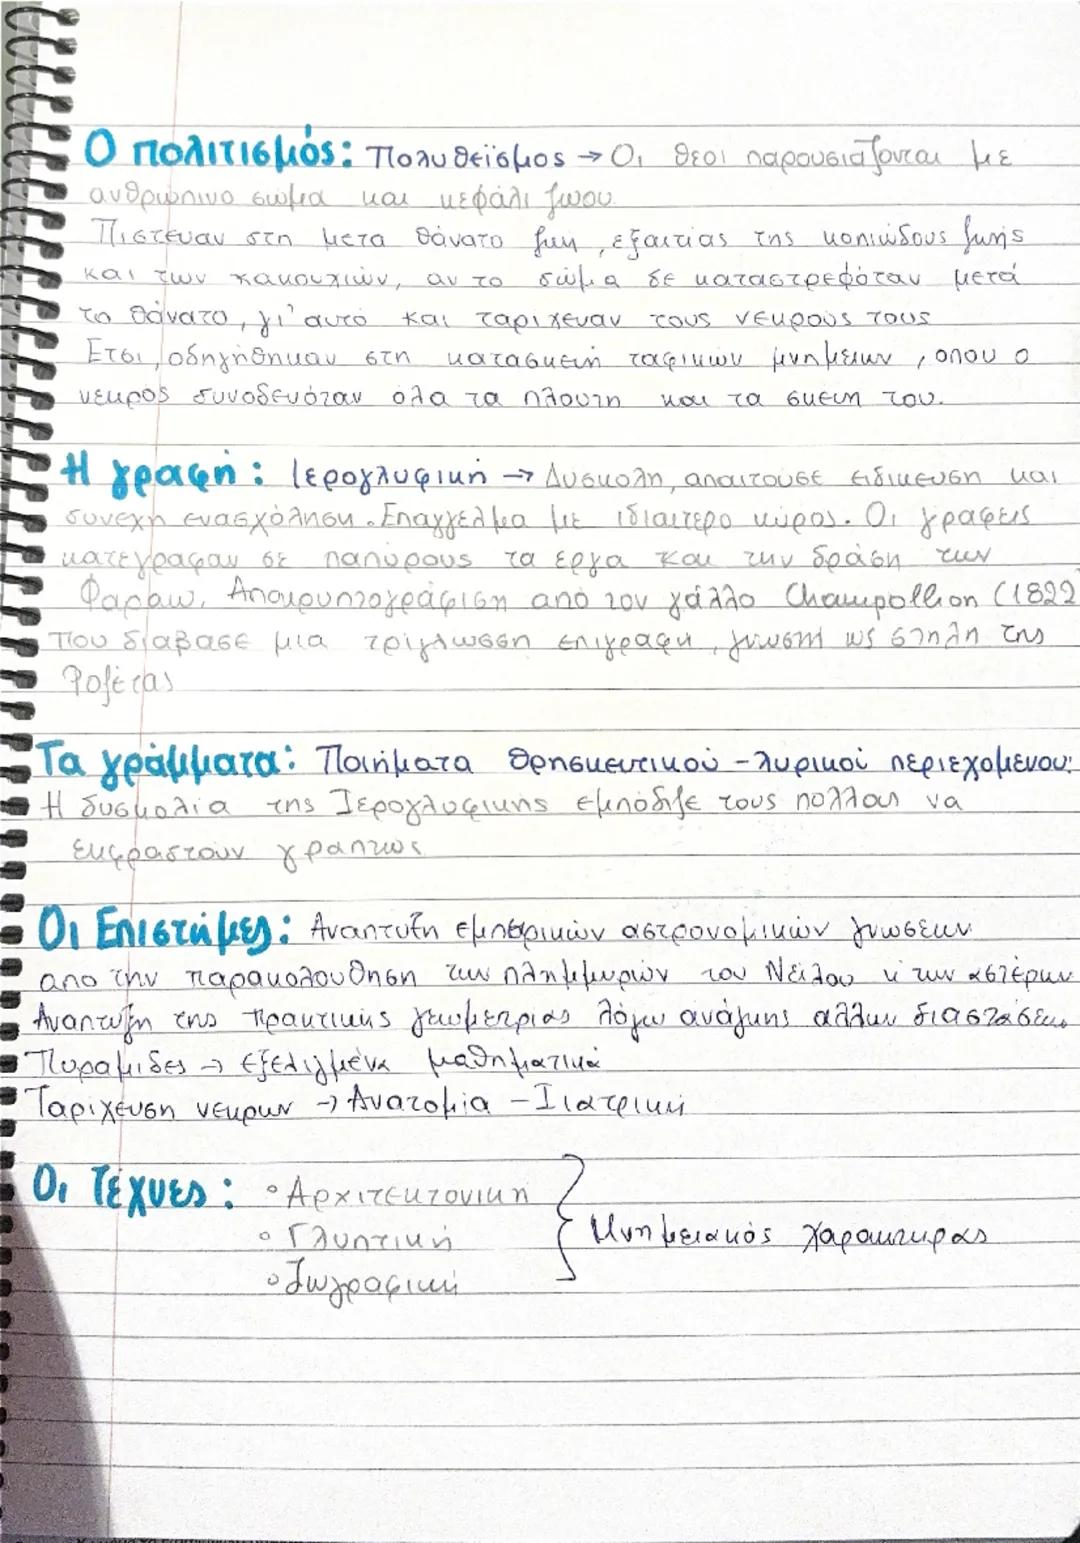 Ο πολιτισμός: Πολυθεϊσμος → Οι θεοι παρουσιάζονται με
ανθρώπινο σώμα και κεφάλι ζωου
Πιστευαν στη μετα θάνατο ζωη, εξαιτίας της κοπιώδους ζωής
και των κακουχιών, αν το σώμα δε καταστρεφόταν μετά
το θάνατο, γι' αυτό και ταριχευαν τους νεκρους τους
Ετσι, οδηγήθηκαν στη κατασκευή ταφικών μνημειων, οπου ο
νεκρος συνοδευόταν όλα τα πλουτη και τα σκευη του.
Η γραφή: Ιερογλυφική → Δυσκολη, απαιτουσε ειδικευση και
συνεχη ενασχόληση. Επαγγελμα με ιδιαιτερο κύρος. Οι γραφεις
κατεγραφαν σε παπύρους τα εργα και την δράση των
Φαραω. Αποκρυπτογράφιση από τον γάλλο Champollion (1822
που διαβασε μια τριγλωσση επιγραφη, γνωστή ως στηλη της
Ροζέτας
Τα γράμματα: Ποιήματα θρησκευτικού - λυρικού περιεχομενου:
Η δυσκολία της Ιερογλυφικης εμπόδιζε τους πολλους να
εκφραστουν γραπτως
Οι Επιστήμες: Αναπτυξη εμπειρικών αστρονομικών γνωσεων
απο την παρακολουθηση των πλημμυρών του Νείλου κ των αστέρων
Αναπτυξη της πρακτικης γεωμετρίας λόγω ανάγκης αλλων διαστάσεων
Πυραμιδες → εξελιγμένα μαθηματικά
Ταριχευση νεκρων → Ανατομία - Ιιατρική
Οι Τέχνες: ∘ Αρχιτεκτονικη
∘ Γλυπτική
∘ Ζωγραφική
Μνημειακός χαρακτηρας